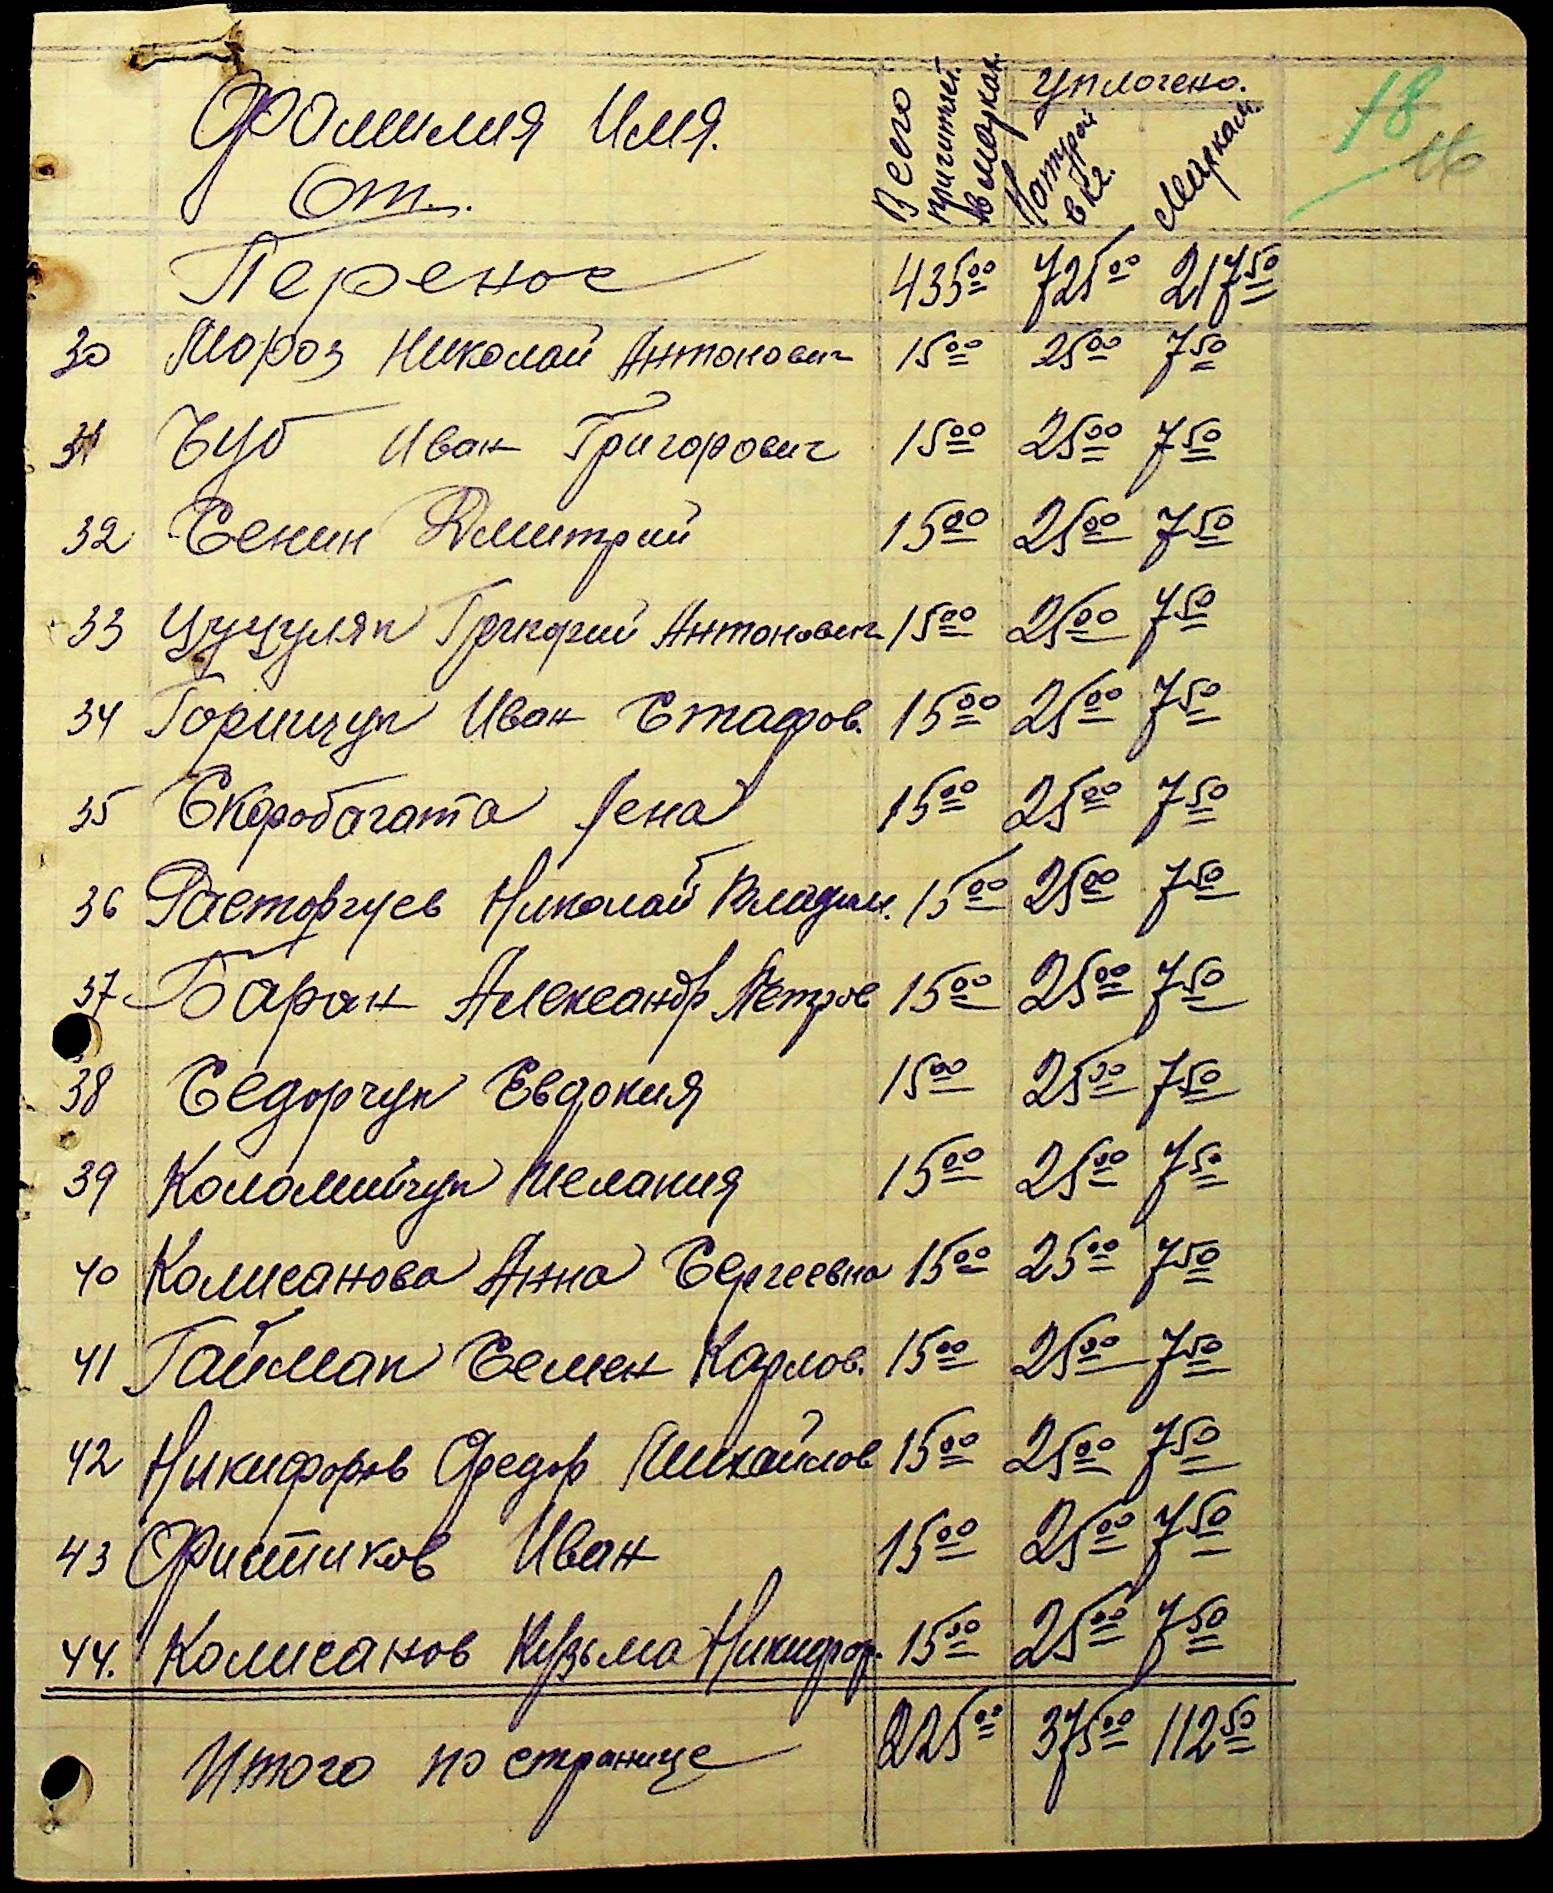 Фамилия Имя. Всего причитает. в марках Уплочено.
От. Натурой в кг. Марками
18
16
Перенос 435.00 725.00 217.50
30 Мороз Николай Антонович 15.00 25.00 7.50
31 Чуб Иван Григорович 15.00 25.00 7.50
32 Сенин Дмитрий 15.00 25.00 7.50
33 Цуцуляк Григорий Антонович 15.00 25.00 7.50
34 Горищук Иван Стафов. 15.00 25.00 7.50
35 Скоробогата Лена 15.00 25.00 7.50
36 Расторгуев Николай Владим. 15.00 25.00 7.50
37 Баран Александр Петров 15.00 25.00 7.50
38 Седорчук Евдокия 15.00 25.00 7.50
39 Коломийчук Мелания 15.00 25.00 7.50
40 Колисанова Анна Сергеевна 15.00 25.00 7.50
41 Гайман Семен Карлов. 15.00 25.00 7.50
42 Никифоров Федор Михайлов 15.00 25.00 7.50
43 Фистиков Иван 15.00 25.00 7.50
44. Колисанов Кузьма Никифор. 15.00 25.00 7.50
Итого по странице 225.00 375.00 112.50